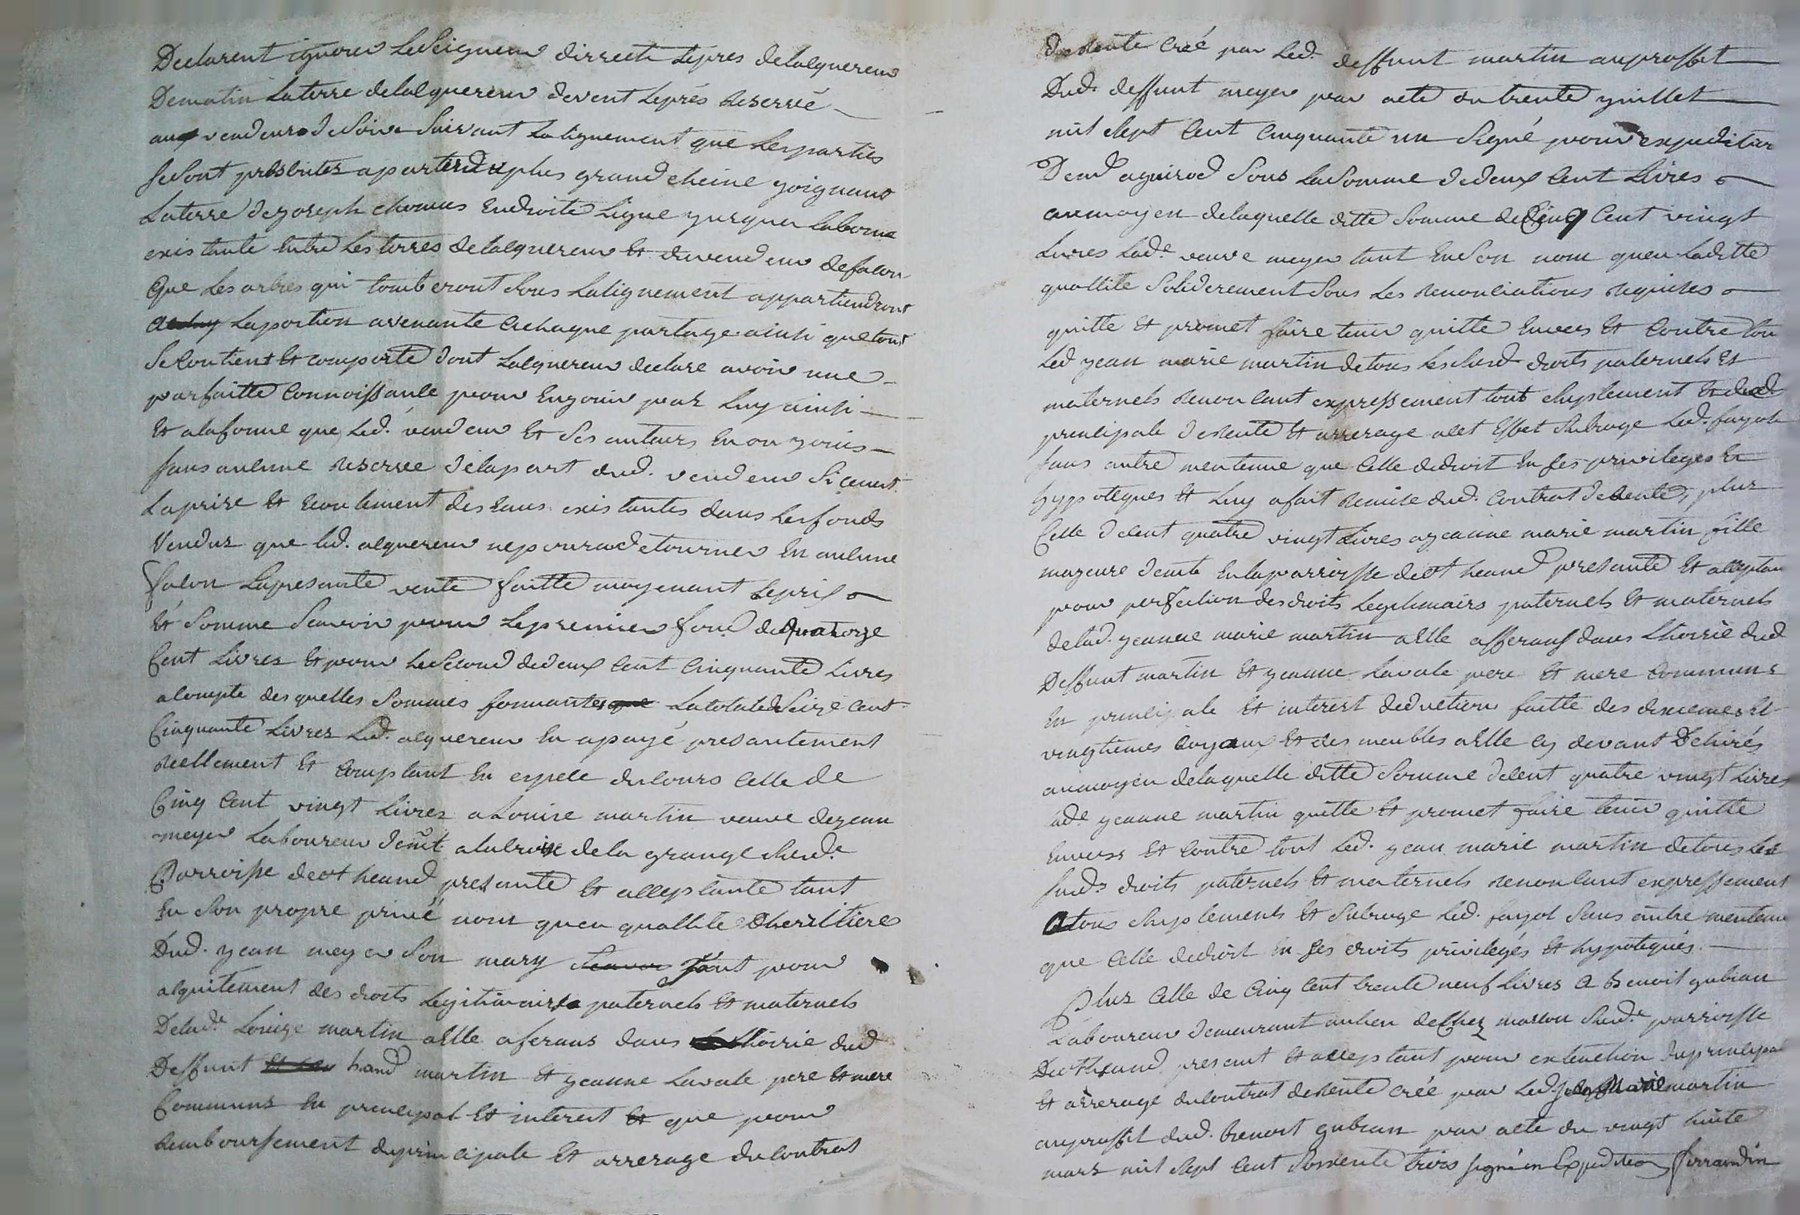 Declarent ignorer Le Seigneur dirrecte Le pres de lacquereur
De matin La terre de lacquereur devent Le prés reservé
aux vendeurs de Soir Suivant Lalignement que Les parties
se sont presentes a partir du plus grand cheine yoignant
La terre de yoseph chomus En droite Ligne yusqua La borne
existante Entre Les terres de lacquereur Et du vendeur de facon
Que Les arbres qui tomberont Sous Lalignement appartiendront
La portion avenante a chaque partage ainsi que tout
Se Contient Et comporte dont Lacquereur declare avoir une
parfaitte Connoissance pour En youir par Luy ainsi
Et a la forme que Led. vendeur Et Ses auteurs En on youis
sans aucune reserve de la part dud. vendeur Si ce nest
La prise Et Ecoulement des Eaux existantes dans Les fonds
Vendus que Led. acquereur ne poura detourner En aucune
facon La presante vente faitte moyenant Le prix
Et Somme Scavoir pour Le premier fond de Quatorze
Cent Livres Et pour Le Second de deux Cent Cinquante Livres
a Compte des quelles Sommes formantes La totale de Seize Cent
Cinquante Livres Led. acquereur En a payé presantement
reellement Et Comptant En espece du Cours Celle de
Cinq Cent vingt Livres a Louise martin veuve de yean
meyer Laboureur demt a La Croix de la grange Sud.e
Parroisse de St heand presante Et acceptante tant
En Son propre privé nom quen quallite Dheritiere
Dud. yean meyer Son mary tant pour
acquitement des droits Legitimaires paternels Et maternels
De lad.e Louise martin a Elle aferans dans Lhoirie dud
Deffunt hand martin Et yeanne Lavale pere Et mere
Communs En principal Et interest que pour
Remboursement du principale Et arrerage du Contrat
de rente Creé par Led. deffunt martin au proffit
Dud. deffunt meyer par acte du trente yuillet
mil Sept Cent Cinquante un Signé pour expedition
Dend aguirod Sous La Somme de deux Cent Livres
au moyen de laquelle ditte Somme de Cinq Cent vingt
Livres Lad.e veuve meyer tant En Son nom quen Laditte
quallite Soliderement Sous Les renonciations requises
quitte Et promet faire tenir quitte Envers Et Contre tou
Led yean marie martin de tous Les susd droits paternels Et
maternels renoncant expressement tout Suplement Et dud
principale de rente Et arrerage a Cet Effet Subroge Led. fayol
sans autre mentenue que Celle de droit En Ses privileges Et
hypoteques Et Luy a fait remise dud. Contrat de rente, plus
Celle de Cent quatre vingt Livres a yeanne marie martin fille
mayeure demte En La parroisse de St heand presante Et acceptan
pour perfection des droits Legitimairs paternels Et maternels
de lad. yeanne marie martin a Elle afferans dans Lhoirie dud
Deffunt martin Et yeanne Lavale pere Et mere Communs
En principale Et interest deduction faitte des dixiemes Et
vingtiemes Royaux Et des meubles a Elle Cy devant Delivrés
au moyen de laquelle ditte Somme de Cent quatre vingt Livres
Lad.e yeanne martin quitte Et promet faire tenir quitte
Envers Et Contre tout Led. yean marie martin de tous Les
susds droits paternels Et maternels renoncant expressement
A tous Suplements Et Subroge Led. fayol Sans autre mentenue
que Celle de droit En Ses droits privilegés Et hypotequés.
Plus Celle de Cinq Cent trente neuf Livres a Benoit gubian
Laboureur demeurant au lieu de Chez masson Sud.e parroisse
De St heand present Et acceptant pour extenction du principal
Et arrerage du Contrat de rente Creé par Led. Marie martin
au proffit dud. Benoit gubian par acte du vingt huite
mars mil Sept Cent Soixente trois signé en Expedition ferrandin